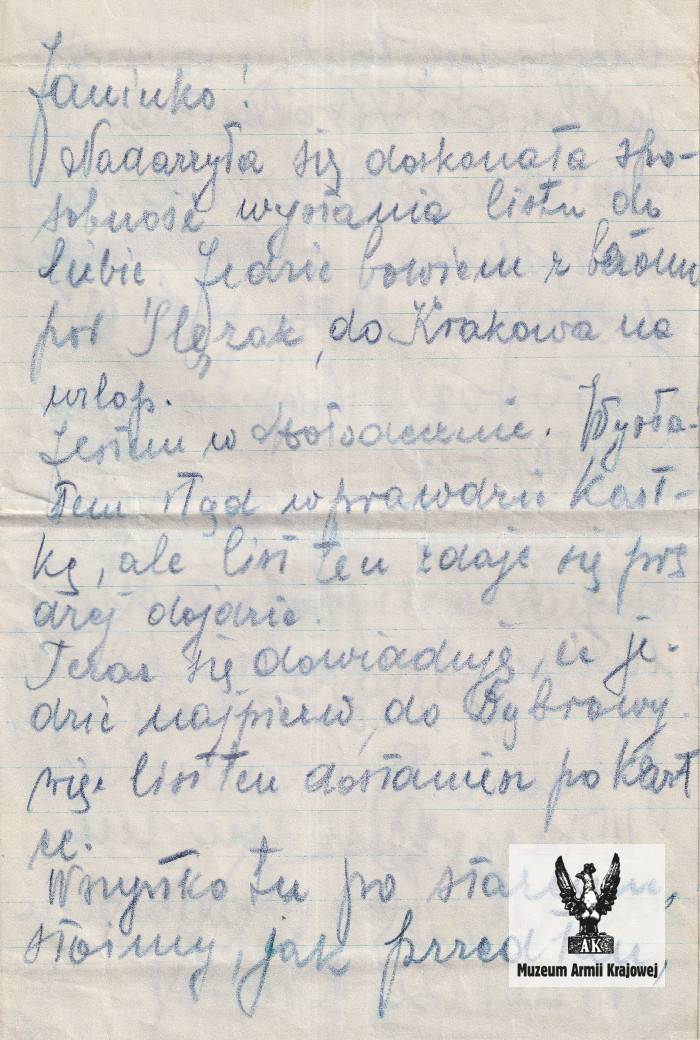 Janinko!
Nadarzyła się doskonała spo-
sobność wysłania listu do
Ciebie. Jedzie bowiem z baonu
por Ślęzak, do Krakowa na
urlop.
Jestem w . Wysła-
łem stąd wprawdzie kart-
kę, ale list ten zdaje się prę
dzej dojdzie.
Teraz się dowiaduję, że je-
dzie najpierw, do Dąbrowy
więc list ten dostaniesz po kart
ce.
Wszystko tu po starem,
stoimy, jak przedtem,
AK
Muzeum Armii Krajowej